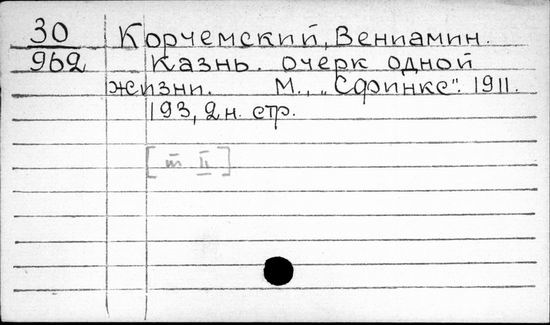 30 Корчемский, Вениамин.
962 Казнь. очерк одной
жизни. М., „Сфинкс". 1911.
193, 2 н. стр.
[т II]